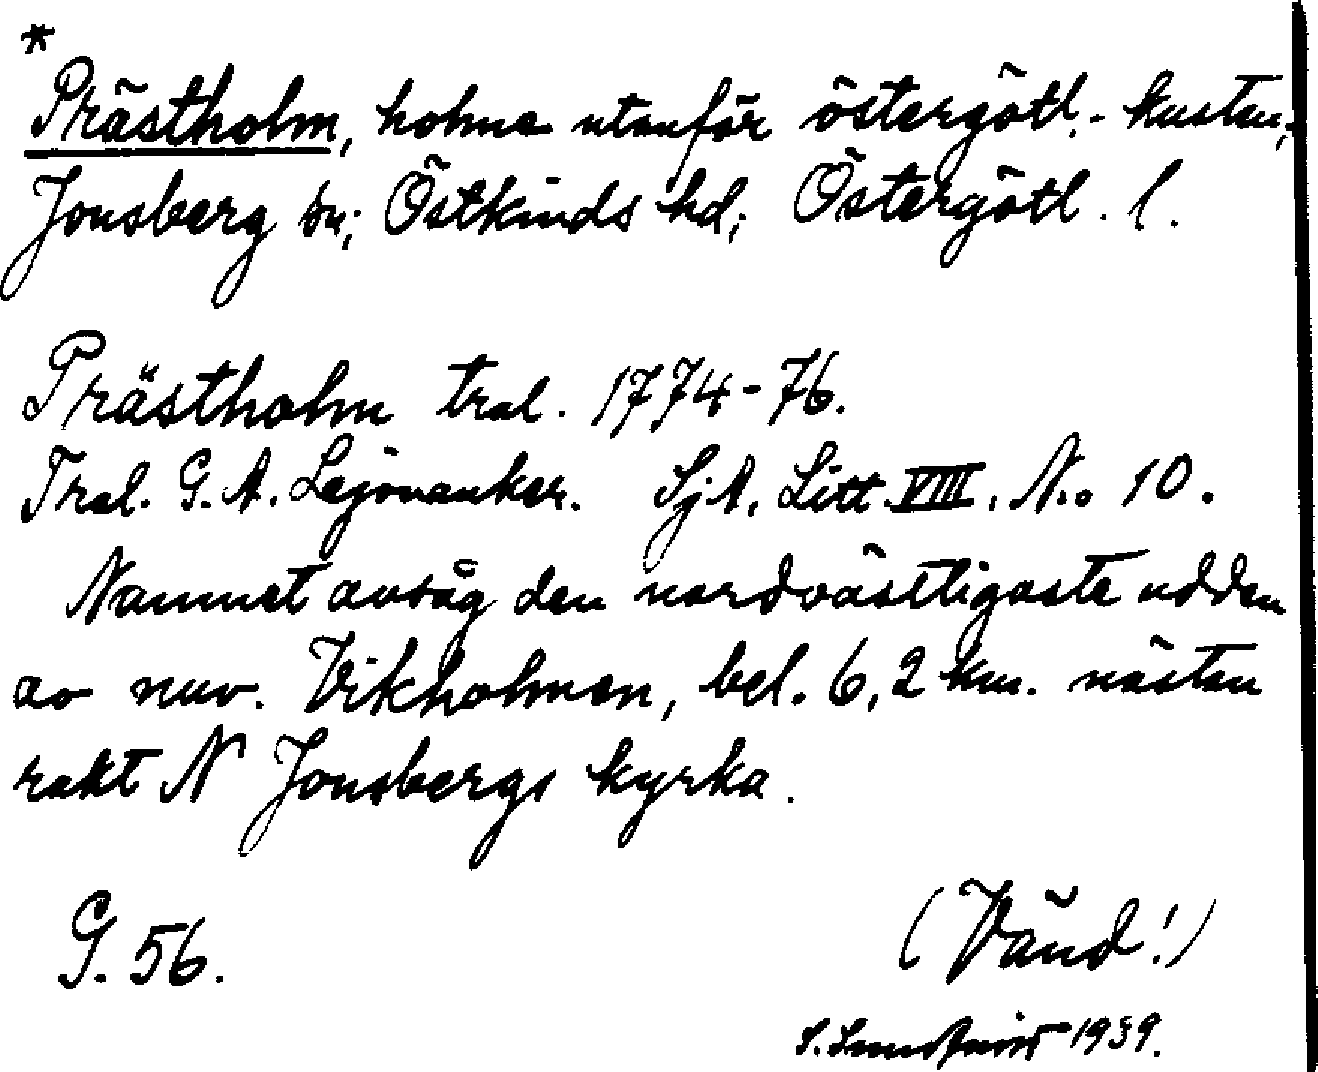 *
Prästholm, holme utanför östergötl.- kusten;
Jonsberg sn; Östkinds hd; Östergötl. l.
Prästholm tral. 1774-76.
Tral. G. A. Lejonanker. SjA. Litt. VIII. N.o 10.
Namnet avsåg den nordvästligaste udden
av nuv. Vikholmen, bel. 6,2 km. nästan
rakt N Jonsbergs kyrka.
G. 56.
(Vänd!)
S. 1939.